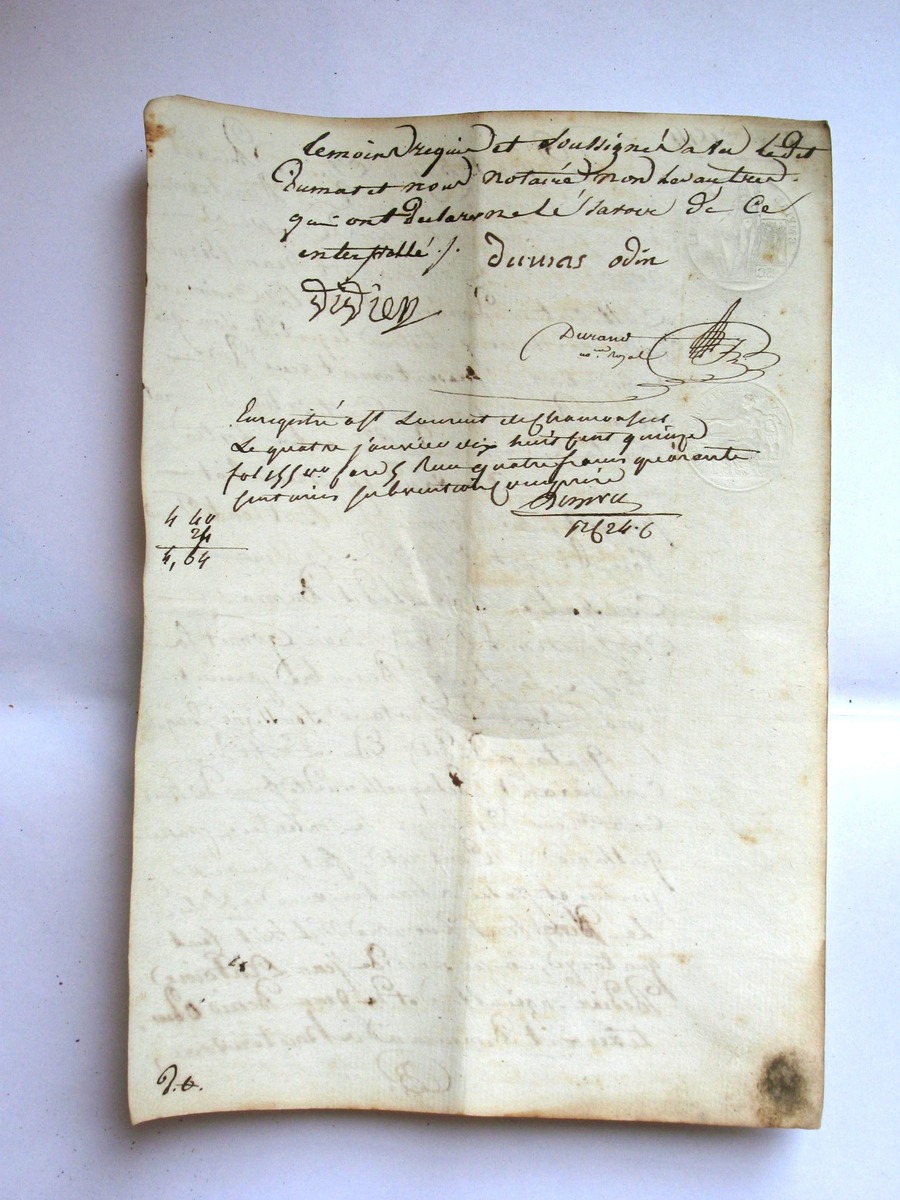 temoins requis et soussignés avec ledit
Dumas et nous notaire non les autres
qui ont declaré ne le savoir de ce
interpellé ./.
Dumas odin
Didier
Durand
no.re Royal
Enregistré a St Laurent de Chamousset
Le quatre janvier dix huit cent quinze
fol 155 vo. Care 5 Reçu quatre francs quarante
centimes subvention comprise
12f 24.6
4 40
24
4,64